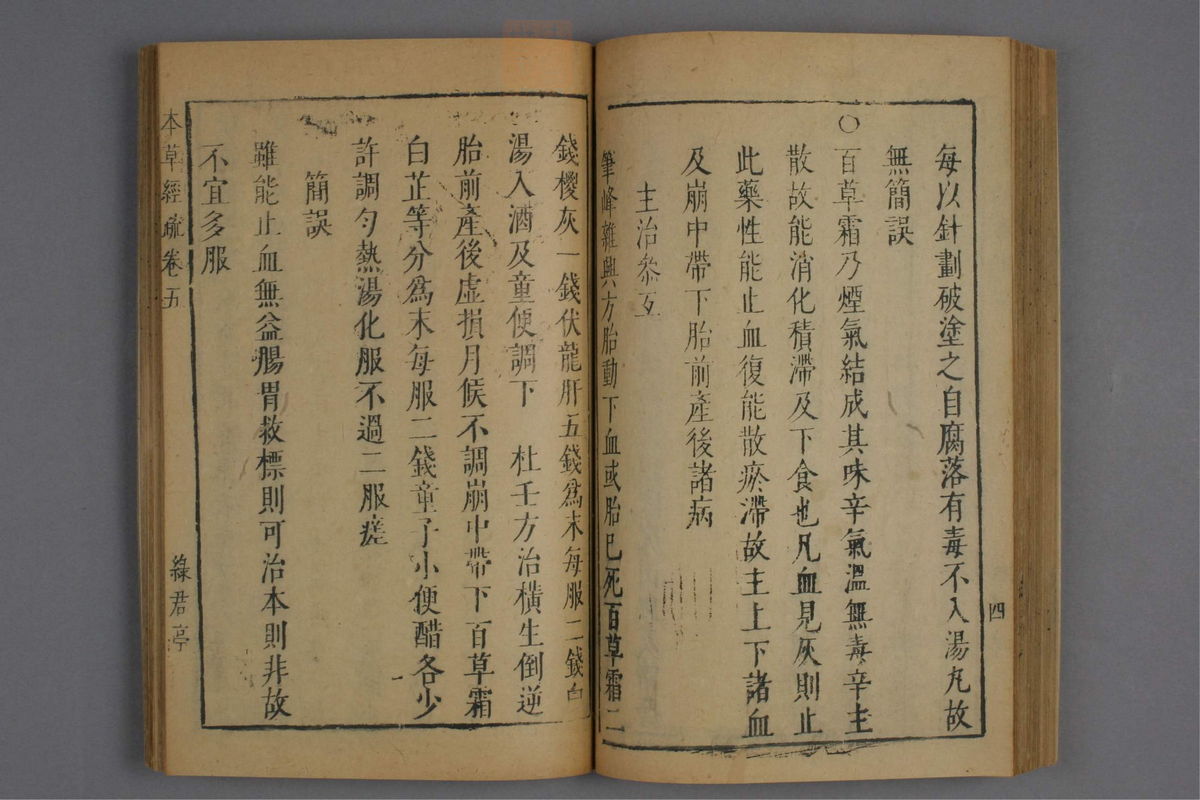 四
每以針劃破塗之自腐落有毒不入湯丸故
無簡誤
○百草霜乃煙氣結成其味辛氣溫無毒辛主
散故能消化積滯及下食也凡血見灰則止
此藥性能止血復能散瘀滯故主上下諸血
及崩中帶下胎前產後諸病
主治參互
筆峰雜興方胎動下血或胎已死百草霜二
錢椶灰一錢伏龍肝五錢為末每服二錢白
湯入酒及童便調下 杜壬方治橫生倒逆
胎前產後虛損月候不調崩中帶下百草霜
白芷等分爲末每服二錢童子小便醋各少
許調勻熱湯化服不過二服瘥
簡誤
雖能止血無益腸胃救標則可治本則非故
不宜多服
本草經疏卷五
綠君亭